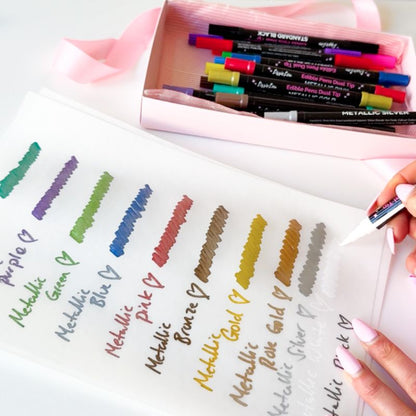 STANDARD BLACK
Edible Pens Dual Tip
Edible Pens Dual Tip
Edible Pens Dual Tip
METALLIC SILVER
Purple
Metallic
Green
Metallic
Blue
Metallic
Pink
Metallic
Bronze
Metallic
Gold
Metallic
Rose Gold
Metallic Silver
Metallic White
Metallic